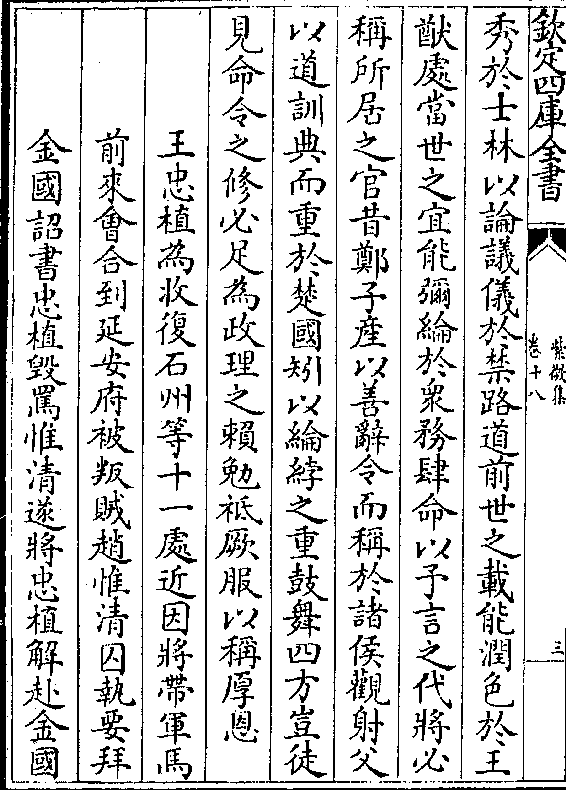 欽定四庫全書
紫微集
卷十八
三
秀於士林以論議儀於禁路道前世之載能潤色於王
猷處當世之宜能彌綸於衆務肆命以予言之代將必
稱所居之官昔鄭子產以善辭令而稱於諸侯觀射父
以道訓典而重於楚國矧以綸綍之重鼓舞四方豈徒
見命令之修必足為政理之賴勉祗厥服以稱厚恩
王忠植為收復石州等十一處近因將帶軍馬
前來會合到延安府被叛賊趙惟清囚執要拜
金國詔書忠植毀罵惟清遂將忠植解赴金國